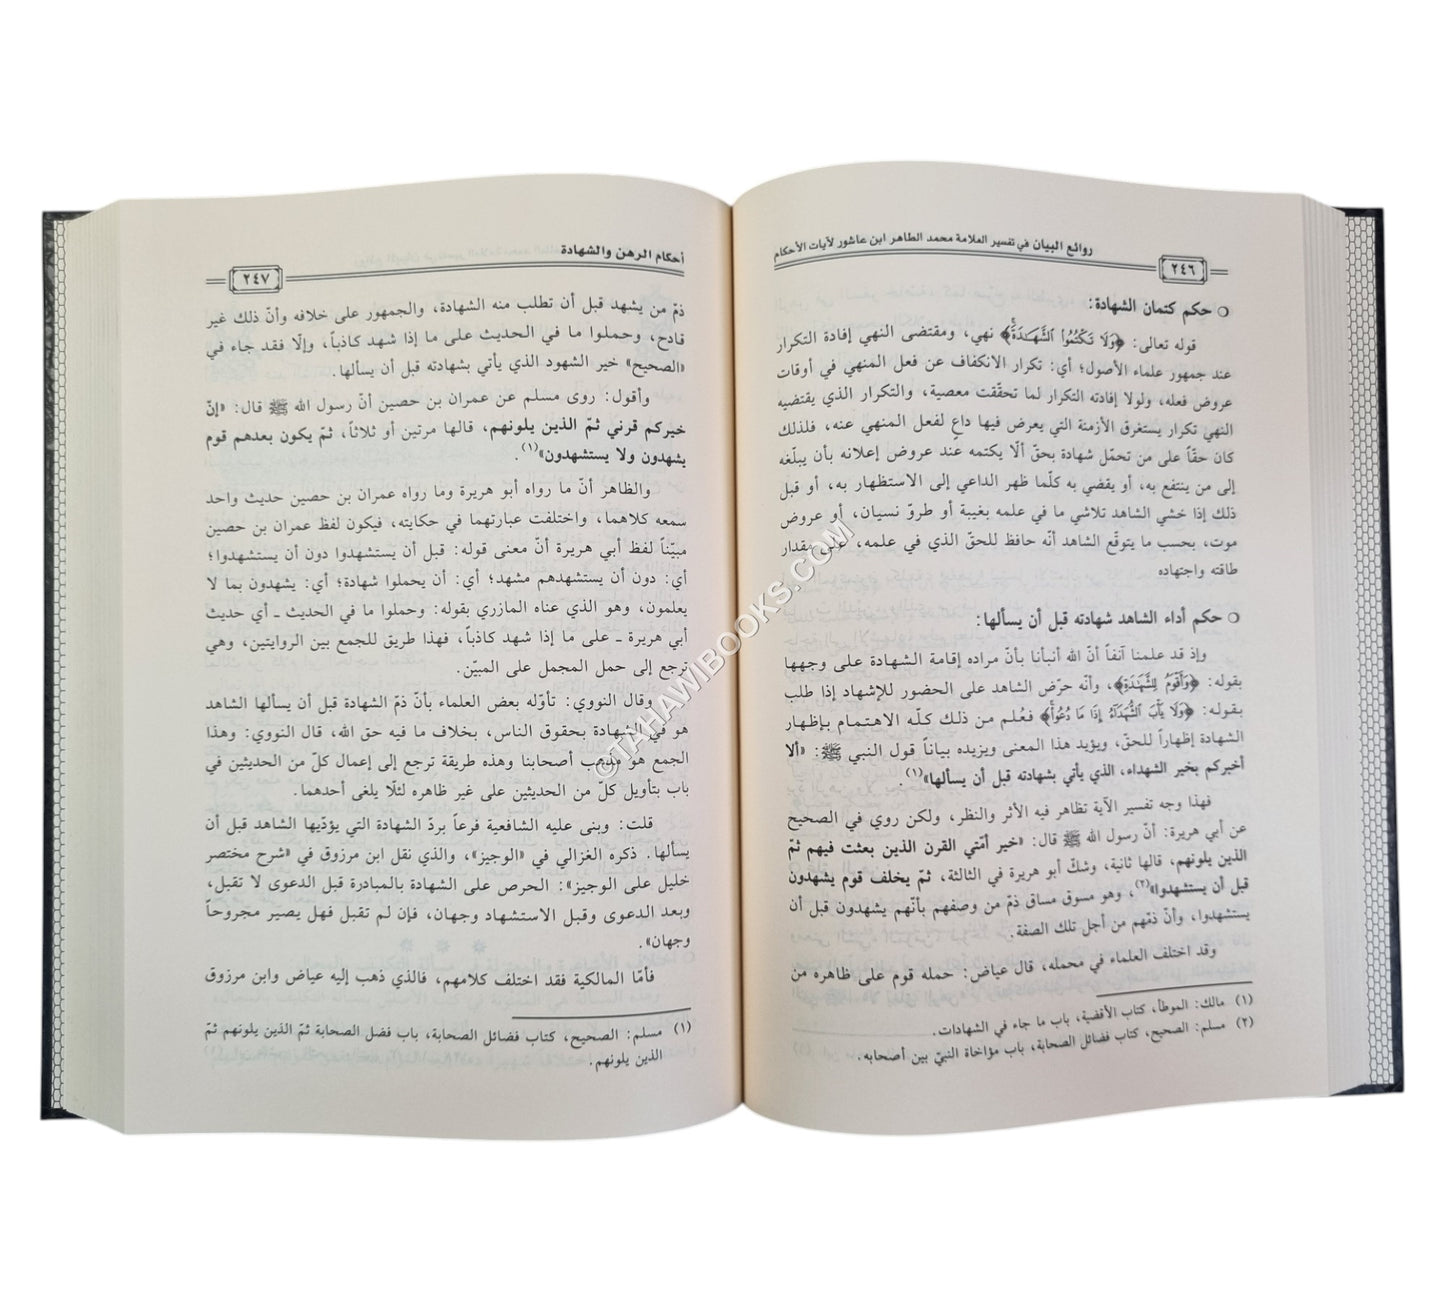 روائع البيان في تفسير العلامة محمد الطاهر ابن عاشور لآيات الأحكام
٢٤٦
○ حكم كتمان الشهادة:
قوله تعالى: ﴿وَلَا تَكْتُمُوا۟ ٱلشَّهَـٰدَةَ﴾ نهي، ومقتضى النهي إفادة التكرار
عند جمهور علماء الأصول؛ أي: تكرار الانكفاف عن فعل المنهي في أوقات
عروض فعله، ولولا إفادته التكرار لما تحقّقت معصية، والتكرار الذي يقتضيه
النهي تكرار يستغرق الأزمنة التي يعرض فيها داعٍ لفعل المنهي عنه، فلذلك
كان حقّاً على من تحمّل شهادة بحقّ ألّا يكتمه عند عروض إعلانه بأن يبلّغه
إلى من ينتفع به، أو يقضي به كلّما ظهر الداعي إلى الاستظهار به، أو قبل
ذلك إذا خشي الشاهد تلاشي ما في علمه بغيبة أو طروّ نسيان، أو عروض
موت، بحسب ما يتوقّع الشاهد أنّه حافظ للحقّ الذي في علمه، على مقدار
طاقته واجتهاده
○ حكم أداء الشاهد شهادته قبل أن يسألها:
وإذ قد علمنا آنفاً أنّ الله أنبأنا بأنّ مراده إقامة الشهادة على وجهها
بقوله: ﴿وَأَقْوَمُ لِلشَّهَـٰدَةِ﴾، وأنّه حرّض الشاهد على الحضور للإشهاد إذا طلب
بقوله: ﴿وَلَا يَأْبَ ٱلشُّهَدَآءُ إِذَا مَا دُعُوا۟﴾ فعُلم من ذلك كلّه الاهتمام بإظهار
الشهادة إظهاراً للحقّ، ويؤيد هذا المعنى ويزيده بياناً قول النبي ﷺ: «ألا
أخبركم بخير الشهداء، الذي يأتي بشهادته قبل أن يسألها»(١).
فهذا وجه تفسير الآية تظاهر فيه الأثر والنظر، ولكن روي في الصحيح
عن أبي هريرة: أنّ رسول الله ﷺ قال: «خير أمّتي القرن الذين بعثت فيهم ثمّ
الذين يلونهم، قالها ثانية، وشكّ أبو هريرة في الثالثة، ثمّ يخلف قوم يشهدون
قبل أن يستشهدوا»(٢)، وهو مسوق مساق ذمّ من وصفهم بأنّهم يشهدون قبل أن
يستشهدوا، وأنّ ذمّهم من أجل تلك الصفة.
وقد اختلف العلماء في محمله، قال عياض: حمله قوم على ظاهره من
(١) مالك: الموطأ، كتاب الأقضية، باب ما جاء في الشهادات.
(٢) مسلم: الصحيح، كتاب فضائل الصحابة، باب مؤاخاة النبيّ بين أصحابه.
أحكام الرهن والشهادة
٢٤٧
ذمّ من يشهد قبل أن تطلب منه الشهادة، والجمهور على خلافه وأنّ ذلك غير
قادح، وحملوا ما في الحديث على ما إذا شهد كاذباً، وإلّا فقد جاء في
«الصحيح» خير الشهود الذي يأتي بشهادته قبل أن يسألها.
وأقول: روى مسلم عن عمران بن حصين أنّ رسول الله ﷺ قال: «إنّ
خيركم قرني ثمّ الذين يلونهم، قالها مرتين أو ثلاثاً، ثمّ يكون بعدهم قوم
يشهدون ولا يستشهدون»(١).
والظاهر أنّ ما رواه أبو هريرة وما رواه عمران بن حصين حديث واحد
سمعه كلاهما، واختلفت عبارتهما في حكايته، فيكون لفظ عمران بن حصين
مبيّناً لفظ أبي هريرة أنّ معنى قوله: قبل أن يستشهدوا دون أن يستشهدوا؛
أي: دون أن يستشهدهم مشهد؛ أي: أن يحملوا شهادة؛ أي: يشهدون بما لا
يعلمون، وهو الذي عناه المازري بقوله: وحملوا ما في الحديث ـ أي حديث
أبي هريرة ـ على ما إذا شهد كاذباً، فهذا طريق للجمع بين الروايتين، وهي
ترجع إلى حمل المجمل على المبيّن.
وقال النووي: تأوّله بعض العلماء بأنّ ذمّ الشهادة قبل أن يسألها الشاهد
هو في الشهادة بحقوق الناس، بخلاف ما فيه حق الله، قال النووي: وهذا
الجمع هو مذهب أصحابنا وهذه طريقة ترجع إلى إعمال كلّ من الحديثين في
باب بتأويل كلّ من الحديثين على غير ظاهره لئلّا يلغى أحدهما.
قلت: وبنى عليه الشافعية فرعاً بردّ الشهادة التي يؤدّيها الشاهد قبل أن
يسألها. ذكره الغزالي في «الوجيز»، والذي نقل ابن مرزوق في «شرح مختصر
خليل على الوجيز»: الحرص على الشهادة بالمبادرة قبل الدعوى لا تقبل،
وبعد الدعوى وقبل الاستشهاد وجهان، فإن لم تقبل فهل يصير مجروحاً
وجهان».
فأمّا المالكية فقد اختلف كلامهم، فالذي ذهب إليه عياض وابن مرزوق
(١) مسلم: الصحيح، كتاب فضائل الصحابة، باب فضل الصحابة ثمّ الذين يلونهم ثمّ
الذين يلونهم.
©TAHAWIBOOKS.COM